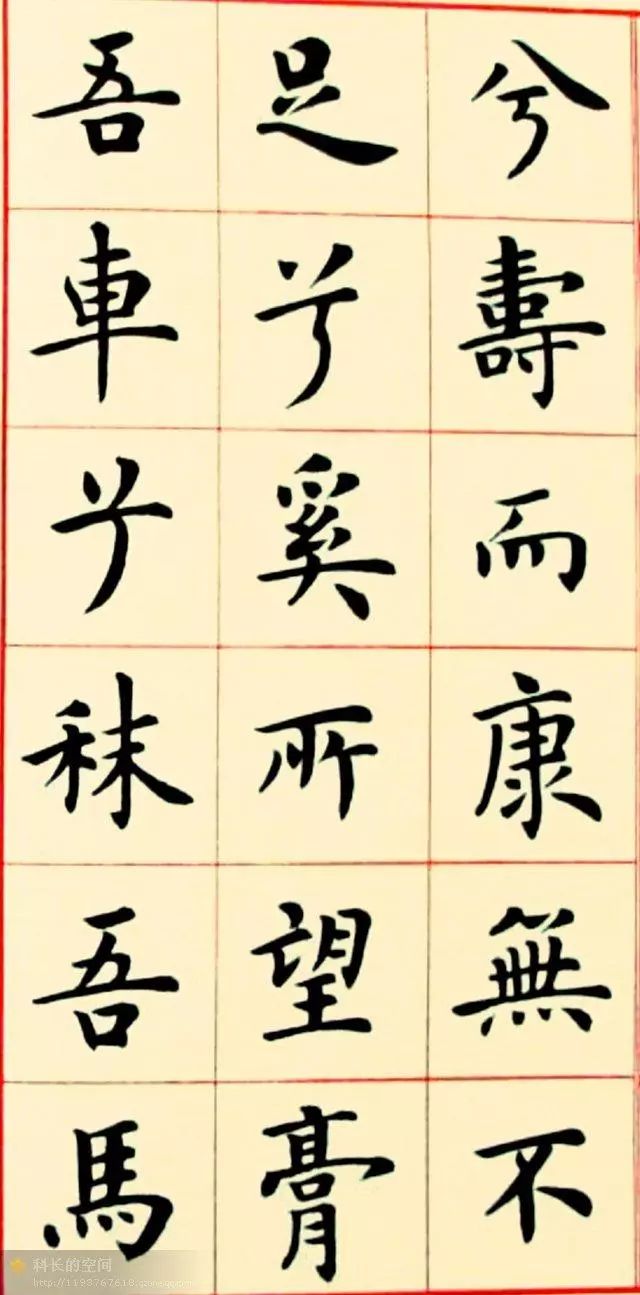 兮壽而康無不
足兮奚所望膏
吾車兮秣吾馬
科长的空间